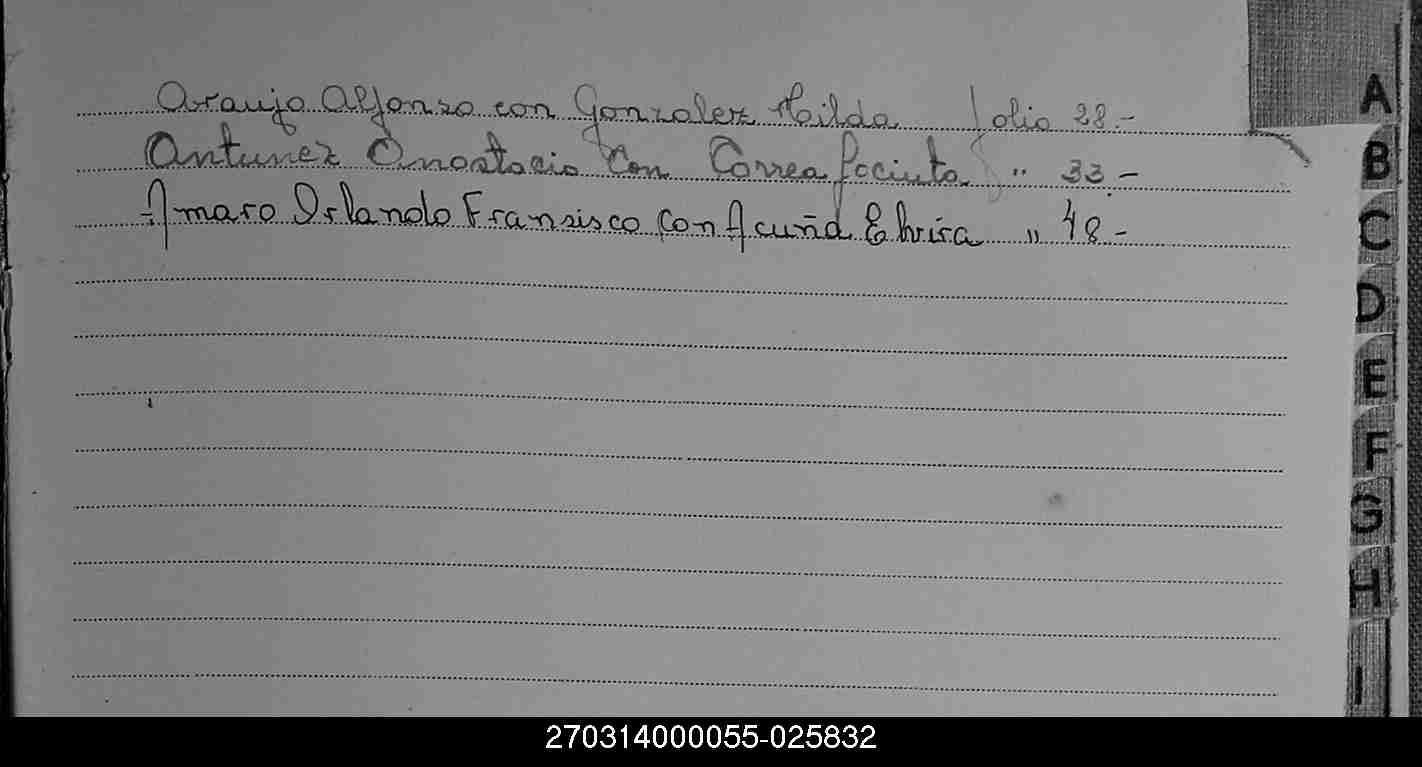 Araujo Alfonso con Gonzalez Hilda folio 28.-
Antunez Anastacio Con Correa Jacinta " 33.-
Amaro Orlando Fransisco Con Acuña Elvira " 48-
A
B
C
D
E
F
G
H
I
270314000055-025832